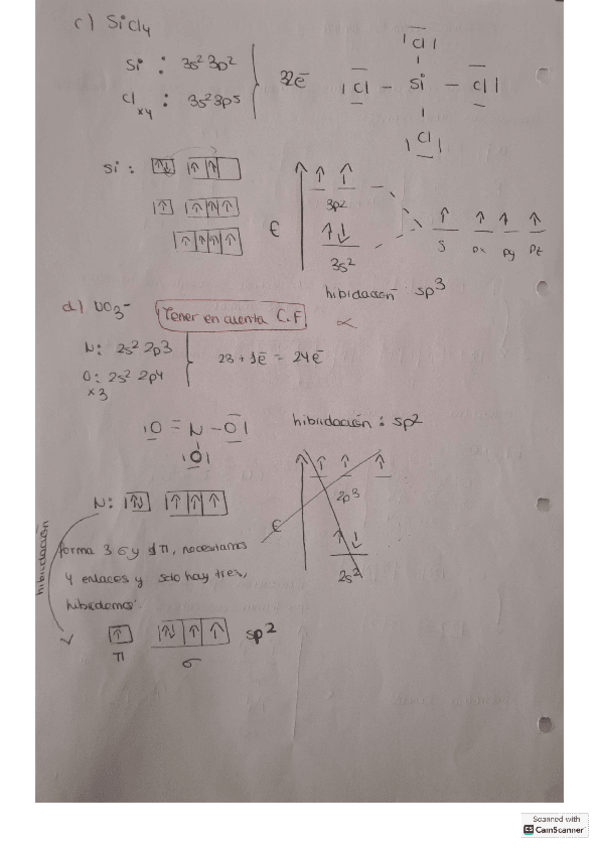 c) SiCl4
Si : 3s² 3p²
Cl x4 : 3s² 3p5
32ē
|Cl|
|Cl - Si - Cl|
|Cl|
Si : ↑↓ ↑ ↑
↑ ↑ ↑ ↑
↑ ↑ ↑ ↑
E
↑ ↑
3p2
↑↓
3s²
↑ ↑ ↑ ↑
S px py pz
hibidación sp3
d) NO3- Tener en cuenta C.F ∝
N: 2s² 2p3
O: 2s² 2p4
x3
23 + 1ē = 24ē
|O = N - O|
|O|
hibridación : sp2
N: ↑↓ ↑ ↑ ↑
E
↑ ↑ ↑
2p3
↑ ↓
2s²
hibridación
forma 3 σ y 1 π, necesitamos
4 enlaces y solo hay tres,
hibridamos:
↑ ↑↓ ↑ ↑ sp2
π σ
Scanned with
CS CamScanner